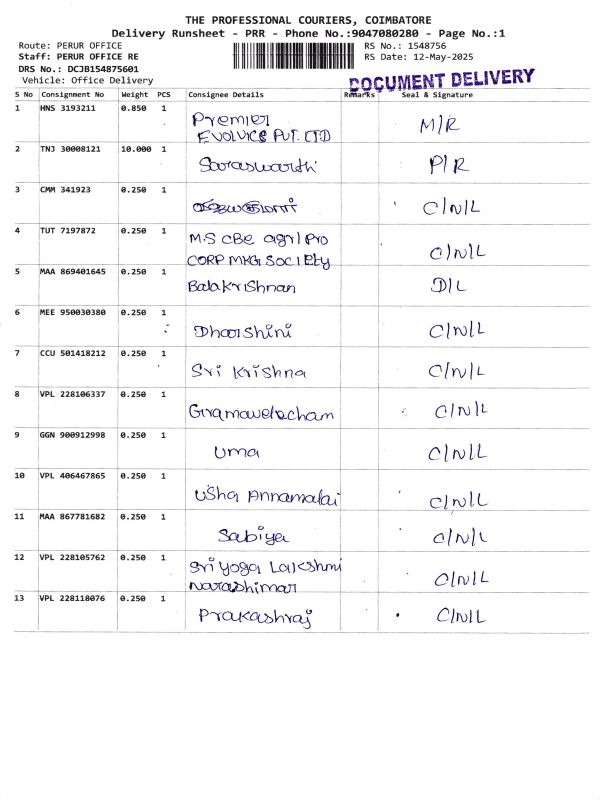 THE PROFESSIONAL COURIERS, COIMBATORE
Delivery Runsheet - PRR - Phone No.:9047080280 - Page No.:1
Route: PERUR OFFICE RS No.: 1548756
Staff: PERUR OFFICE RE RS Date: 12-May-2025
DRS No.: DCJB154875601
Vehicle: Office Delivery DOCUMENT DELIVERY
S No Consignment No Weight PCS Consignee Details Remarks Seal & Signature
1 HNS 3193211 0.850 1 Premier M/R
EVOLVICS PVT. LTD
2 TNJ 30008121 10.000 1 Saraswarthi P/R
3 CMM 341923 0.250 1 C/N/L
4 TUT 7197872 0.250 1 M.S CBE agri Pro C/N/L
CORP MKG SOCIETY
5 MAA 869401645 0.250 1 Balakrishnan D/L
6 MEE 950030380 0.250 1 Dharshini C/N/L
7 CCU 501418212 0.250 1 Sri Krishna C/N/L
8 VPL 228106337 0.250 1 C/N/L
9 GGN 900912998 0.250 1 Uma C/N/L
10 VPL 406467865 0.250 1 Usha Annamalai C/N/L
11 MAA 867781682 0.250 1 Sabiya C/N/L
12 VPL 228105762 0.250 1 Sri Yoga Lakshmi C/N/L
Narashimar
13 VPL 228118076 0.250 1 Prakashraj C/N/L